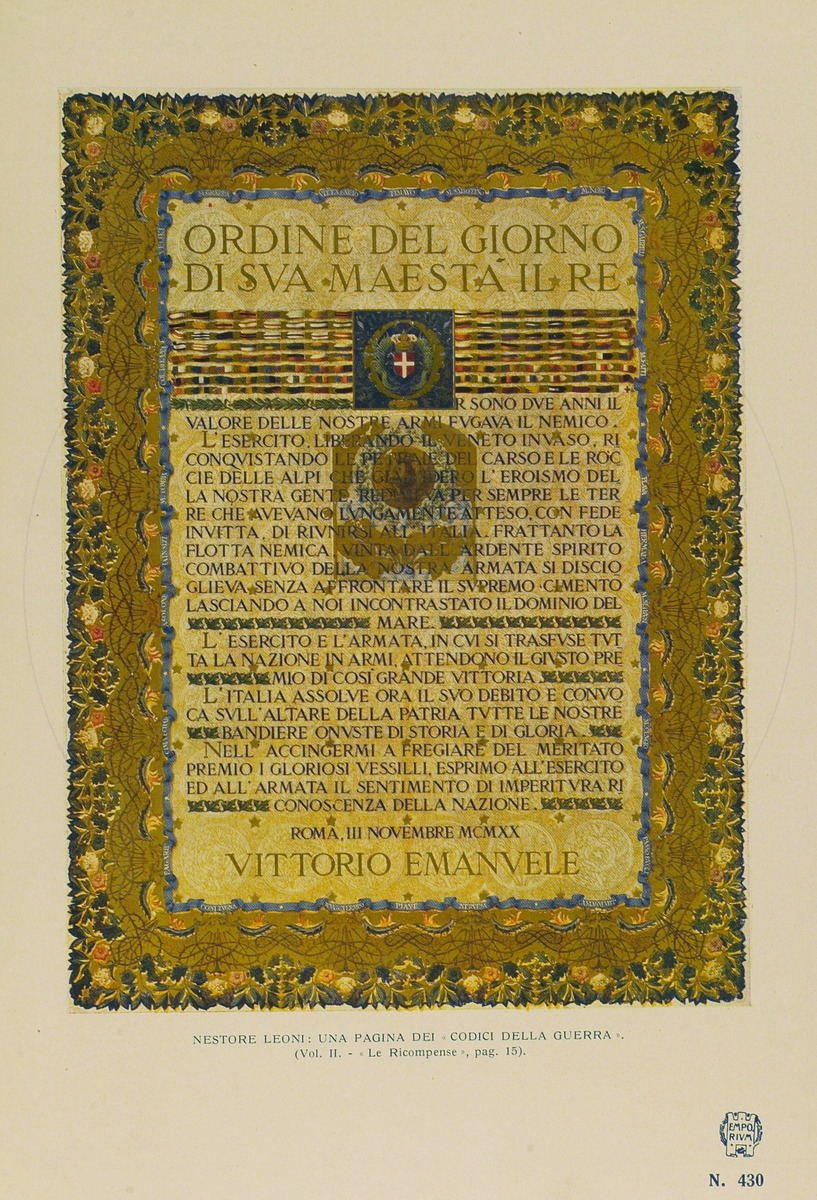 ORDINE DEL GIORNO
DI SVA MAESTÀ IL RE
R SONO DVE ANNI IL
VALORE DELLE NOSTRE ARMI FVGAVA IL NEMICO.
L'ESERCITO, LIBERANDO IL VENETO INVASO, RI
CONQVISTANDO LE PETRAIE DEL CARSO E LE ROC
CIE DELLE ALPI CHE VIDERO L'EROISMO DEL
LA NOSTRA GENTE, REDIMEVA PER SEMPRE LE TER
RE CHE AVEVANO LVNGAMENTE ATTESO, CON FEDE
INVITTA, DI RIVNIRSI ALL'ITALIA. FRATTANTO LA
FLOTTA NEMICA, VINTA DALL'ARDENTE SPIRITO
COMBATTIVO DELLA NOSTRA ARMATA SI DISCIO
GLIEVA SENZA AFFRONTARE IL SVPREMO CIMENTO
LASCIANDO A NOI INCONTRASTATO IL DOMINIO DEL
MARE.
L'ESERCITO E L'ARMATA, IN CVI SI TRASFVSE TVT
TA LA NAZIONE IN ARMI, ATTENDONO IL GIVSTO PRE
MIO DI COSÌ GRANDE VITTORIA.
L'ITALIA ASSOLVE ORA IL SVO DEBITO E CONVO
CA SVLL'ALTARE DELLA PATRIA TVTTE LE NOSTRE
BANDIERE ONVSTE DI STORIA E DI GLORIA.
NELL'ACCINGERMI A FREGIARE DEL MERITATO
PREMIO I GLORIOSI VESSILLI, ESPRIMO ALL'ESERCITO
ED ALL'ARMATA IL SENTIMENTO DI IMPERITVRA RI
CONOSCENZA DELLA NAZIONE.
ROMA, III NOVEMBRE MCMXX
VITTORIO EMANVELE
PIAVE
NESTORE LEONI: UNA PAGINA DEI «CODICI DELLA GUERRA».
(Vol. II. - «Le Ricompense», pag. 15).
EMPO
RIVM
N. 430